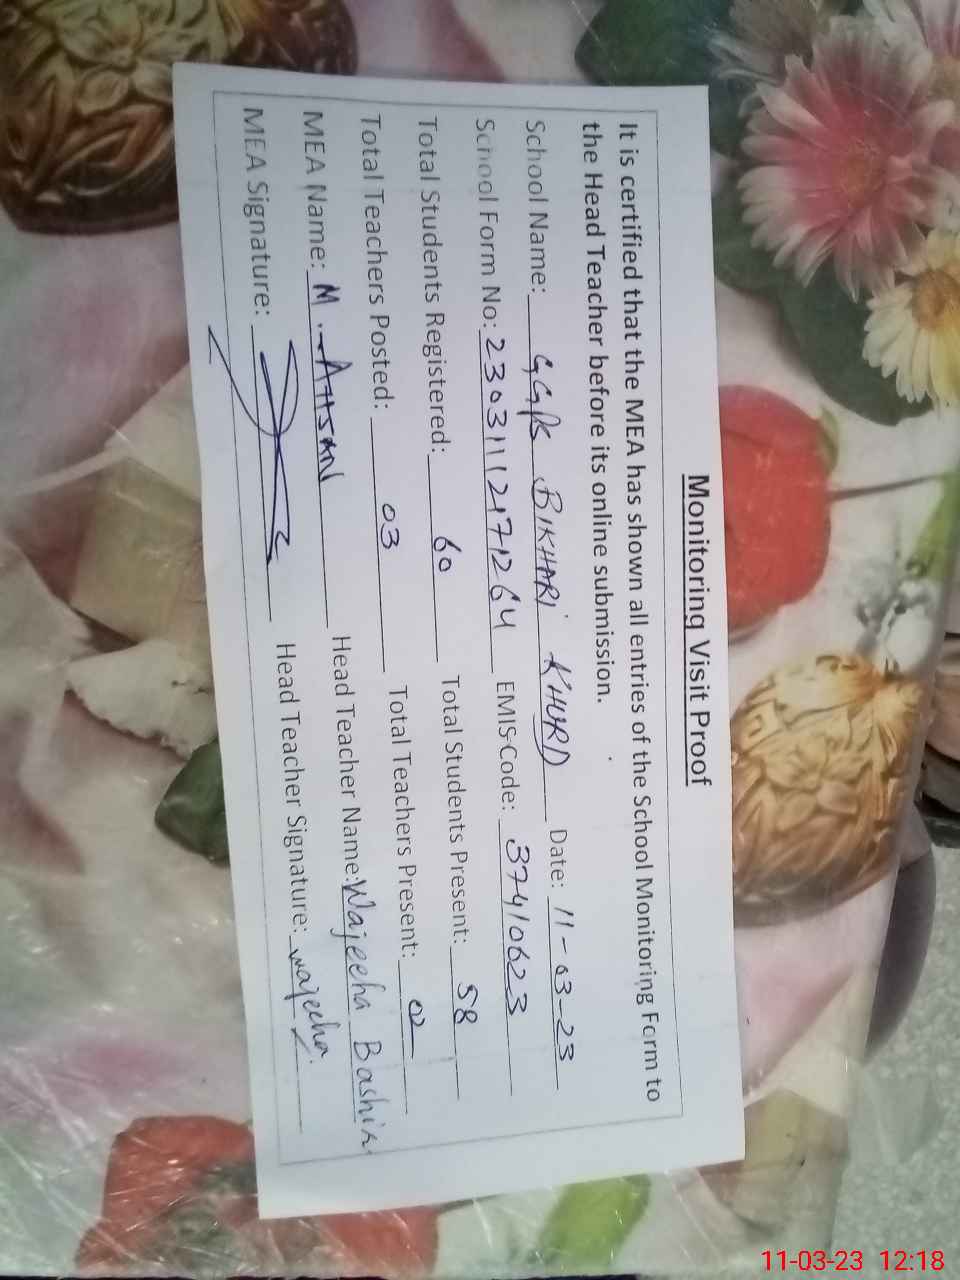 Monitoring Visit Proof
It is certified that the MEA has shown all entries of the School Monitoring Form to
the Head Teacher before its online submission.
School Name: GGPS BIKHARI KHURD Date: 11-03-23
School Form No: 23031112171264 EMIS Code: 37410623
Total Students Registered: 60 Total Students Present: 58
Total Teachers Posted: 03 Total Teachers Present: 02
MEA Name: M. AHSAN Head Teacher Name: Wajeeha Bashir
MEA Signature: Head Teacher Signature: Wajeeha
11-03-23 12:18